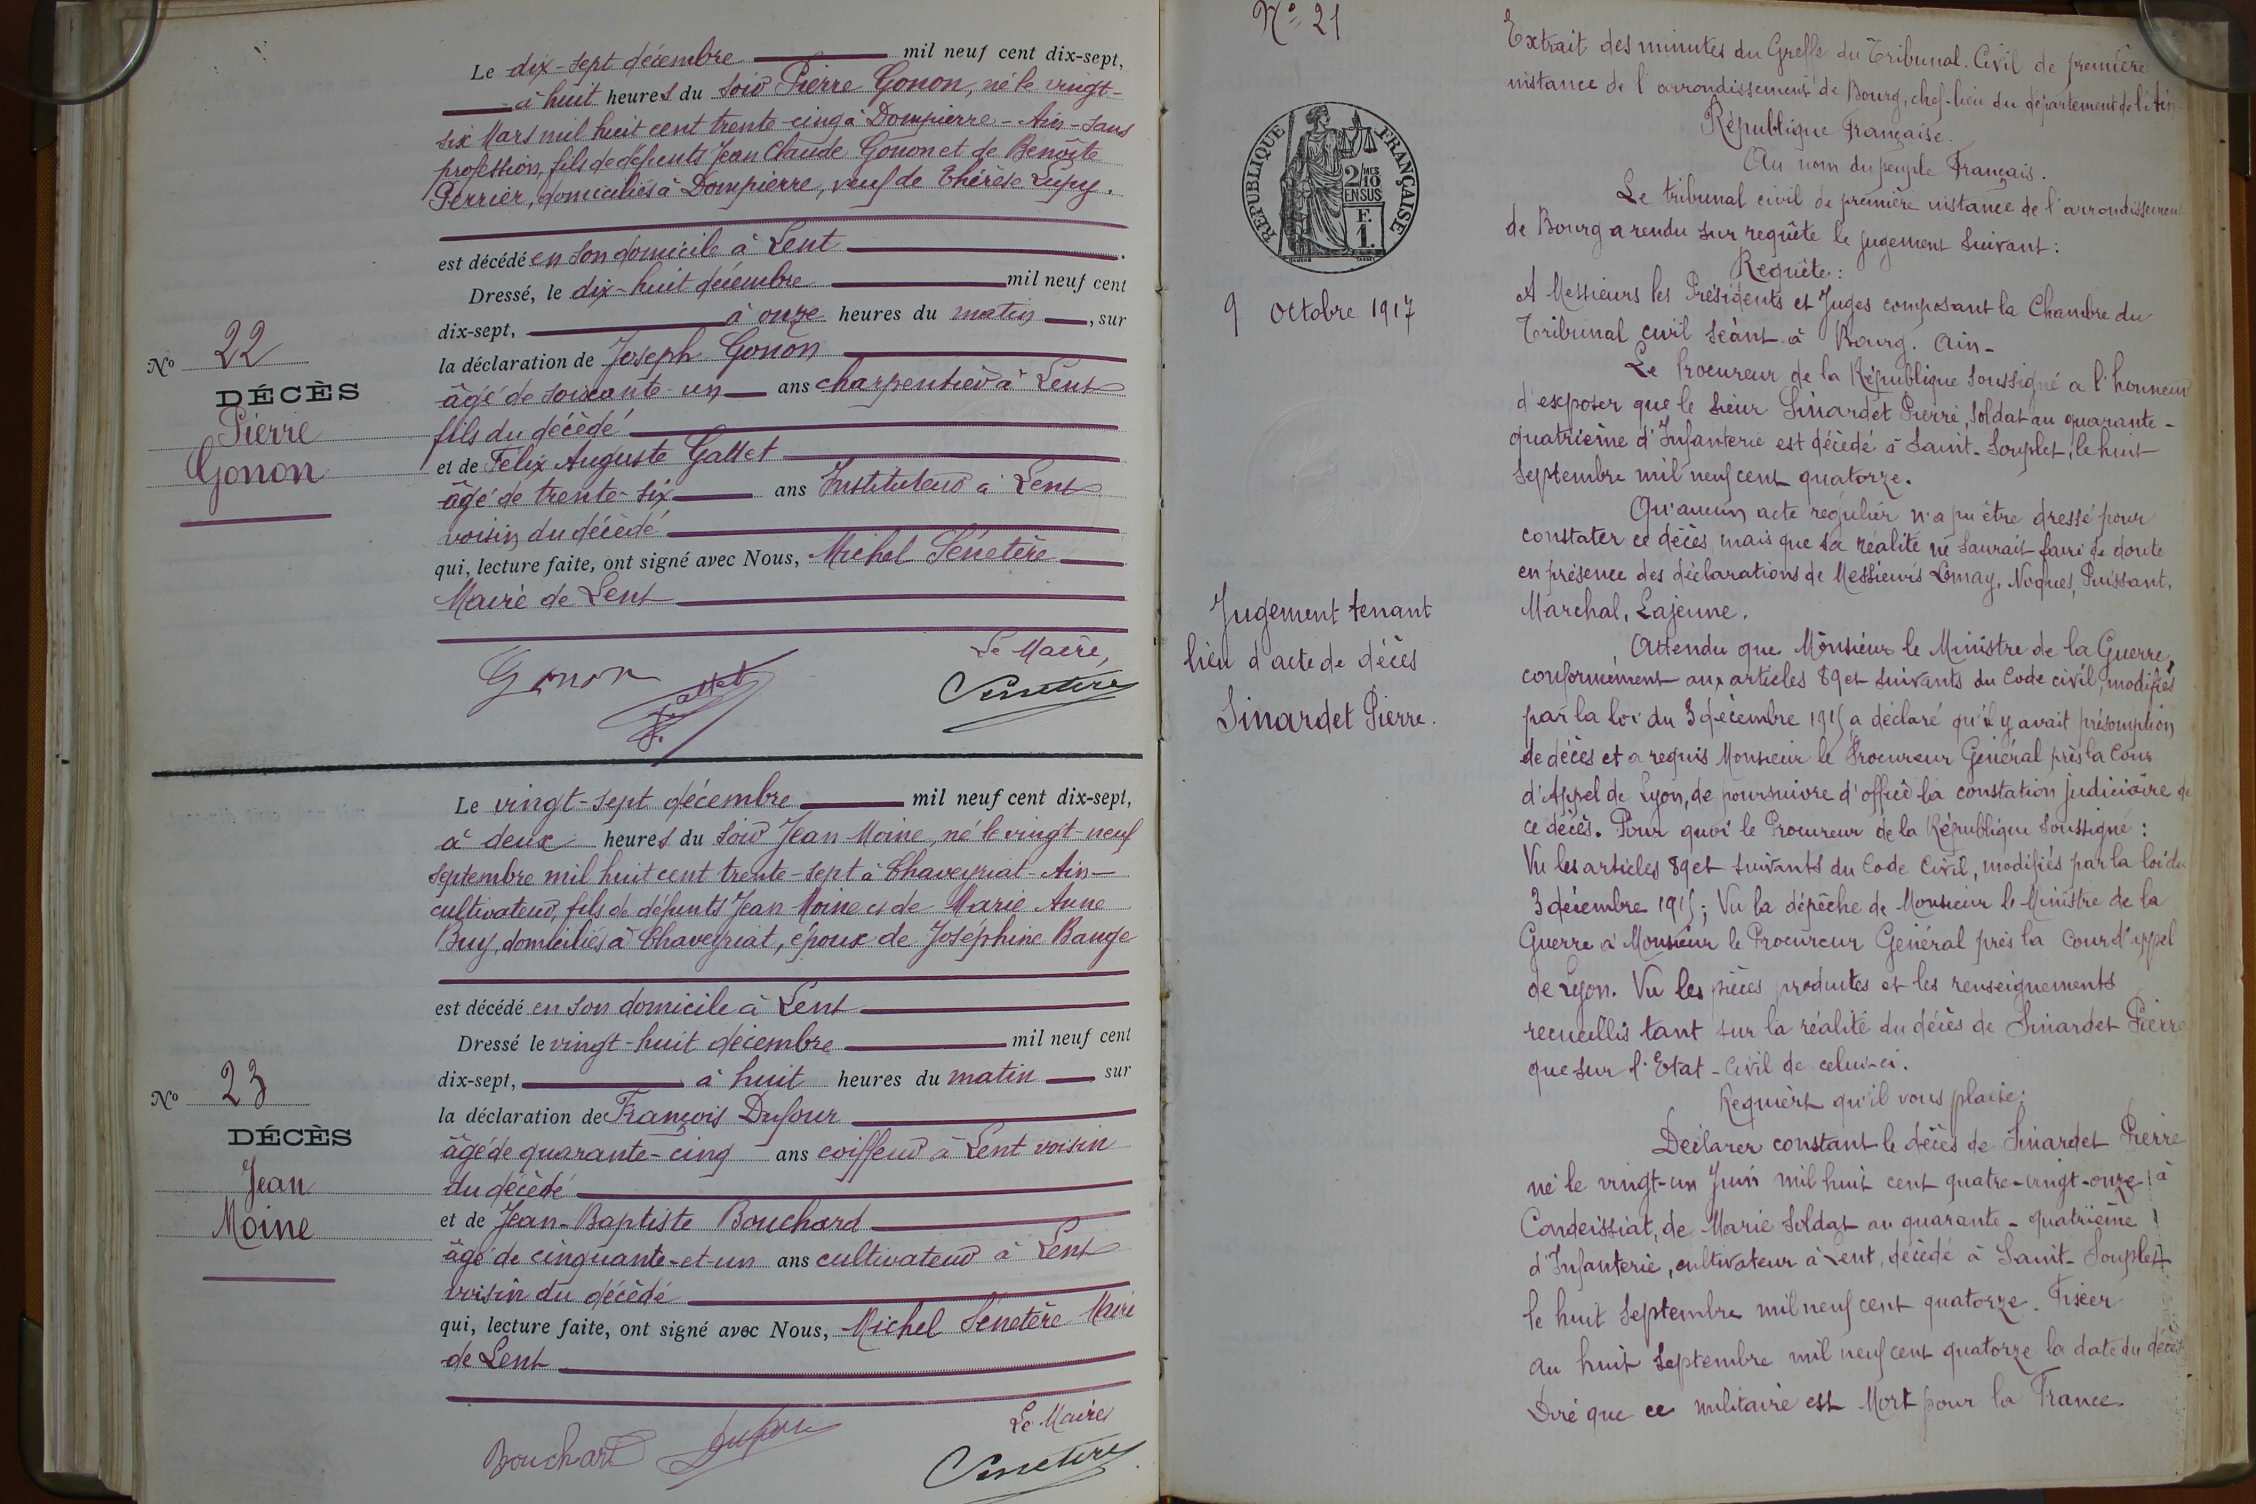 Le dix-sept décembre mil neuf cent dix-sept,
à huit heures du soir Pierre Gonon, né le vingt-
six Mars mil huit cent trente-cinq à Dompierre - Ain - sans
profession, fils de défunts Jean Claude Gonon et de Benoîte
Perrier, domiciliés à Dompierre, veuf de Thérèse Lupy.
est décédé en son domicile à Lent
Dressé, le dix-huit décembre mil neuf cent
dix-sept, à onze heures du matin, sur
la déclaration de Joseph Gonon
âgé de soixante-un ans charpentier à Lent
fils du décédé
et de Felix Auguste Gallet
âgé de trente-six ans Instituteur à Lent
voisin du décédé
qui, lecture faite, ont signé avec Nous, Michel Sénetère
Maire de Lent
Le Maire,
Gonon
Senetere
No 22
DÉCÈS
Pierre
Gonon
Le vingt-sept décembre mil neuf cent dix-sept,
à deux heures du soir Jean Moine, né le vingt-neuf
septembre mil huit cent trente-sept à Chaveyriat - Ain -
cultivateur, fils de défunts Jean Moine et de Marie Anne
Buy, domiciliés à Chaveyriat, époux de Joséphine Bauge
est décédé en son domicile à Lent
Dressé le vingt-huit décembre mil neuf cent
dix-sept, à huit heures du matin sur
la déclaration de François Dufour
âgé de quarante-cinq ans coiffeur à Lent voisin
du décédé
et de Jean-Baptiste Bouchard
âgé de cinquante-et-un ans cultivateur à Lent
voisin du décédé
qui, lecture faite, ont signé avec Nous, Michel Sénetère Maire
de Lent
Le Maire
Bouchard Dufour
Senetere
No 23
DÉCÈS
Jean
Moine
No 21
REPUBLIQUE FRANÇAISE
2/MES
10
EN SUS
F.
1.
9 octobre 1917
Jugement tenant
lieu d'acte de décès
Sinardet Pierre.
Extrait des minutes du Greffe du Tribunal Civil de première
instance de l'arrondissement de Bourg, chef-lieu du département de l'Ain
République Française.
Au nom du peuple Français.
Le tribunal civil de première instance de l'arrondissement
de Bourg a rendu sur requête le jugement suivant:
Requête:
A Messieurs les Présidents et Juges composant la Chambre du
Tribunal civil séant à Bourg. Ain-
Le Procureur de la République soussigné a l'honneur
d'exposer que le sieur Sinardet Pierre, soldat au quarante-
quatrième d'Infanterie est décédé à Saint-Souplet, le huit
septembre mil neuf cent quatorze.
Qu'aucun acte régulier n'a pu être dressé pour
constater ce décès mais que sa réalité ne saurait faire de doute
en présence des déclarations de Messieurs Lomay, Noques, Puissant,
Marchal, Lajeune.
Attendu que Monsieur le Ministre de la Guerre,
conformément aux articles 89 et suivants du Code civil, modifiés
par la loi du 3 décembre 1915 a déclaré qu'il y avait présomption
de décès et a requis Monsieur le Procureur Général près la Cour
d'Appel de Lyon, de poursuivre d'office la constation judiciaire de
ce décès. Pour quoi le Procureur de la République soussigné:
Vu les articles 89 et suivants du Code Civil, modifiés par la loi du
3 décembre 1915; Vu la dépêche de Monsieur le Ministre de la
Guerre à Monsieur le Procureur Général près la Cour d'appel
de Lyon. Vu les pièces produites et les renseignements
recueillis tant sur la réalité du décès de Sinardet Pierre
que sur l'Etat-Civil de celui-ci.
Requiert qu'il vous plaise:
Déclarer constant le décès de Sinardet Pierre
né le vingt-un Juin mil huit cent quatre-vingt-onze à
Condeissiat, de Marie soldat au quarante-quatrième
d'Infanterie, cultivateur à Lent, décédé à Saint-Souplet
le huit septembre mil neuf cent quatorze. Fixer
au huit septembre mil neuf cent quatorze la date du décès
Dire que ce militaire est Mort pour la France.